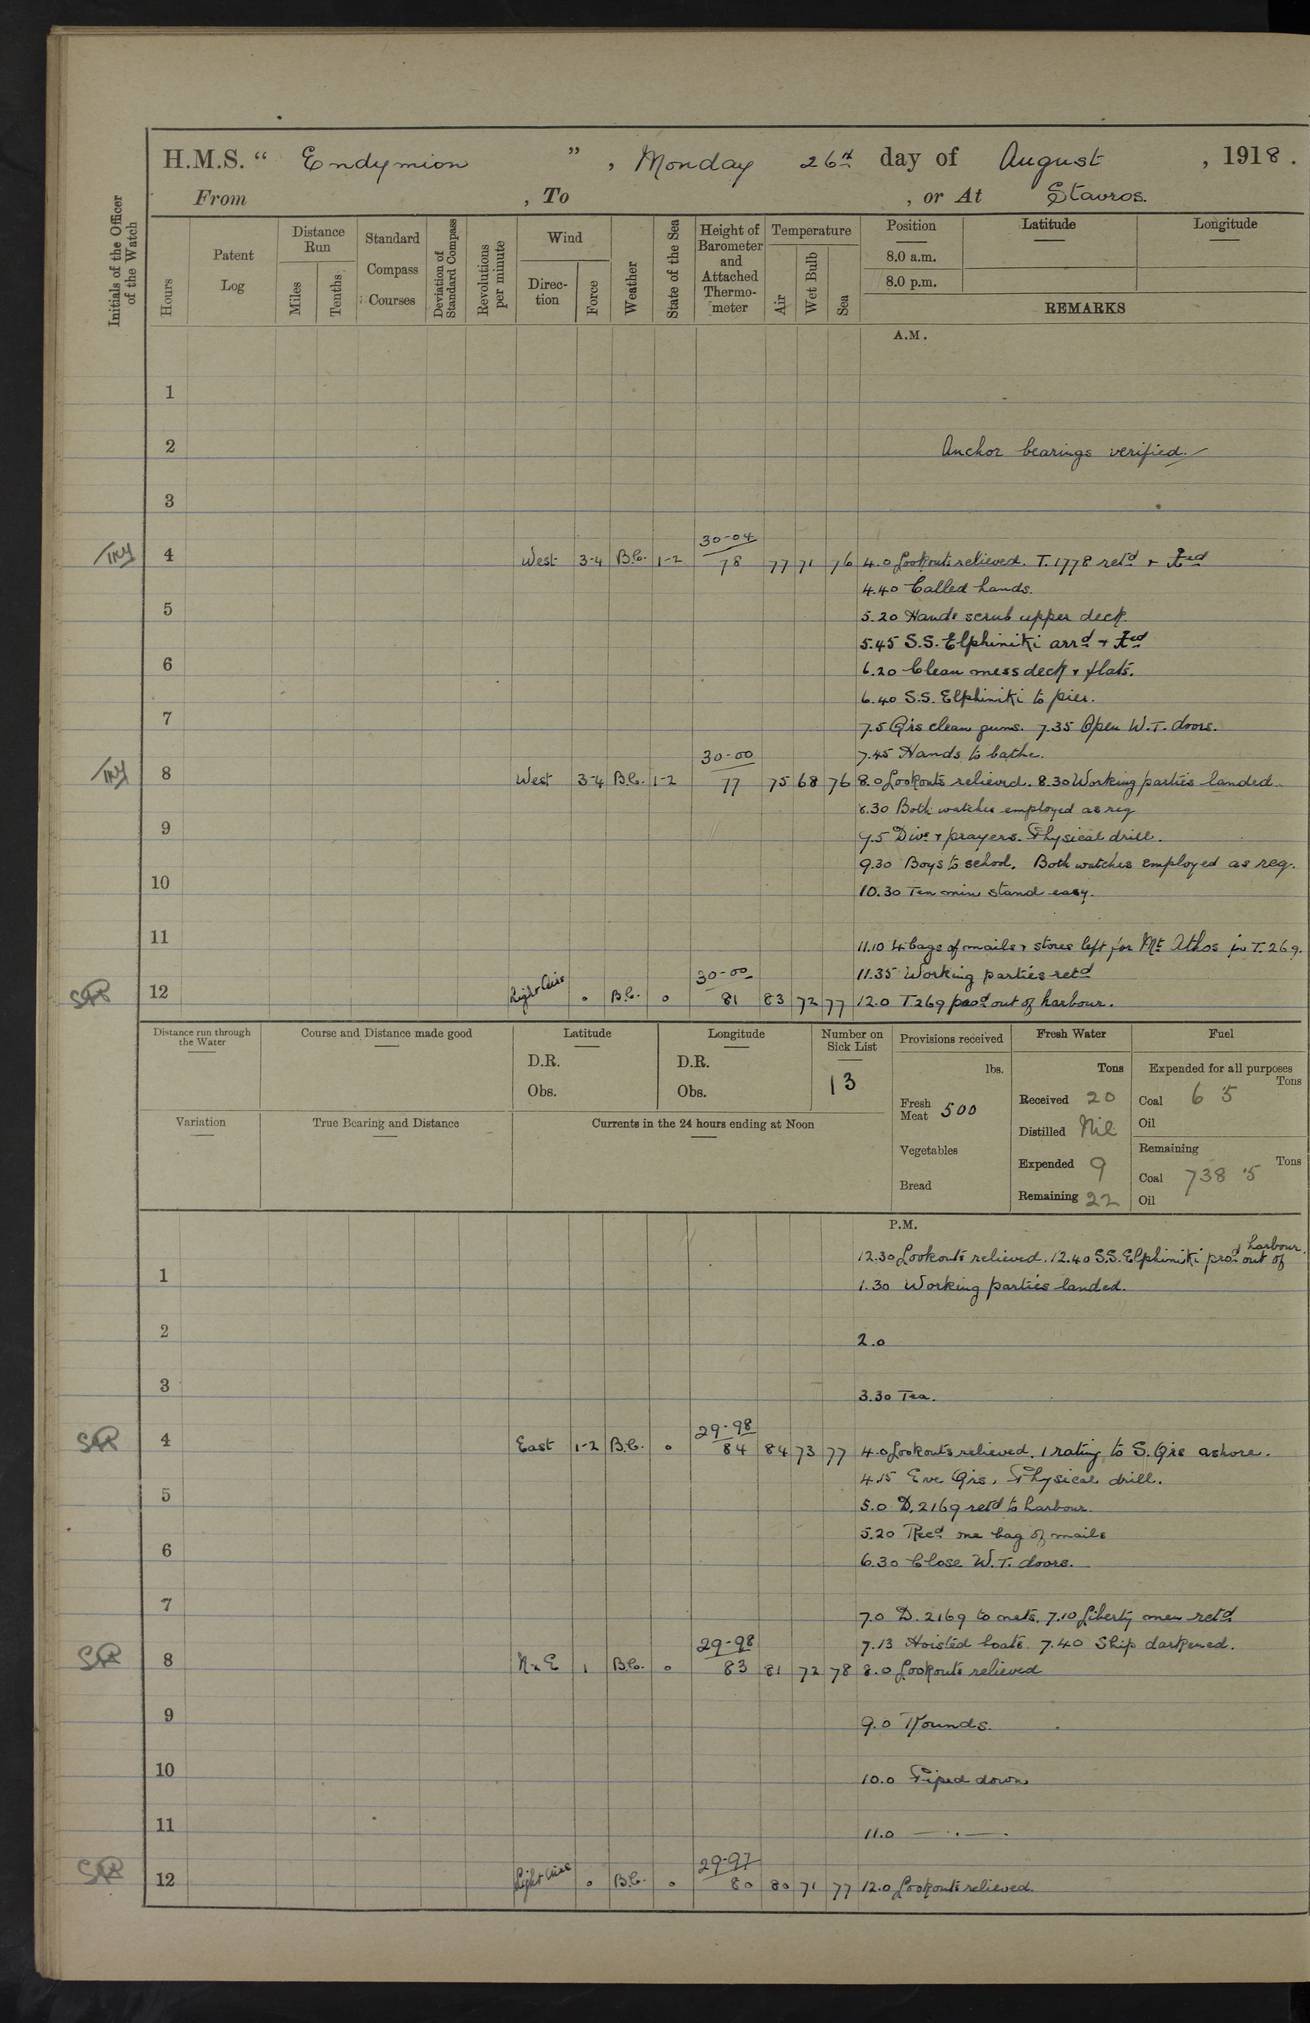 H.M.S. “ Endymion ” , Monday 26th day of August , 1918 .
From , To , or At Stavros.
Initials of the Officer of the Watch
Hours
Patent Log
Distance Run
Miles
Tenths
Standard Compass Courses
Deviation of Standard Compass
Revolutions per minute
Wind
Direc-tion
Force
Weather
State of the Sea
Height of Barometer and Attached Thermo-meter
Temperature
Air
Wet Bulb
Sea
Position
Latitude
Longitude
8.0 a.m.
8.0 p.m.
REMARKS
A.M.
1
2 Anchor bearings verified.
3
30-04
4 West 3-4 B.C. 1-2 78 77 71 76 4.0 Lookouts relieved. T.1778 retd +
4.40 Called hands.
5 5.20 Hands scrub upper deck.
5.45 S.S. Elphiniki arrd +
6 6.20 Clean mess deck + flats.
6.40 S.S. Elphiniki to pier.
7 7.5 Qrs clean guns. 7.35 Open W.T. doors.
30-00 7.45 Hands to bathe.
8 West 3-4 B.C. 1-2 77 75 68 76 8.0 Lookouts relieved. 8.30 Working parties landed.
8.30 Both watches employed as req
9 9.5 Divs + prayers. Physical drill.
9.30 Boys to school. Both watches employed as req.
10 10.30 Ten min stand easy.
11 11.10 4 bags of mails + stores left for Mt Athos in T.269.
30-00 11.35 Working parties retd
12 Light Airs 0 B.C. 0 81 83 72 77 12.0 T.269 proc'd out of harbour.
Distance run through the Water
Course and Distance made good
Latitude
D.R.
Obs.
Longitude
D.R.
Obs.
Number on Sick List
13
Provisions received
lbs.
Fresh Meat 500
Vegetables
Bread
Fresh Water
Tons
Received 20
Distilled Nil
Expended 9
Remaining 22
Fuel
Expended for all purposes
Tons
Coal 6 5
Oil
Remaining
Tons
Coal 738 5
Oil
Variation
True Bearing and Distance
Currents in the 24 hours ending at Noon
P.M.
12.30 Lookouts relieved. 12.40 S.S. Elphiniki proc'd out of harbour.
1 1.30 Working parties landed.
2 2.0
3 3.30 Tea.
29-98
4 East 1-2 B.C. 0 84 84 73 77 4.0 Lookouts relieved. 1 rating to S. Qrs ashore.
4.15 Eve Qrs. Physical drill.
5 5.0 D.2169 retd to harbour.
5.20 Recd one bag of mails
6 6.30 Close W.T. doors.
7 7.0 D.2169 to nets. 7.10 Liberty men retd
29-98 7.13 Hoisted boats. 7.40 Ship darkened.
8 NxE 1 B.C. 0 83 81 72 78 8.0 Lookouts relieved
9 9.0 Rounds.
10 10.0 Piped down
11 11.0 — . —.
29-97
12 Light Airs 0 B.C. 0 80 80 71 77 12.0 Lookouts relieved.